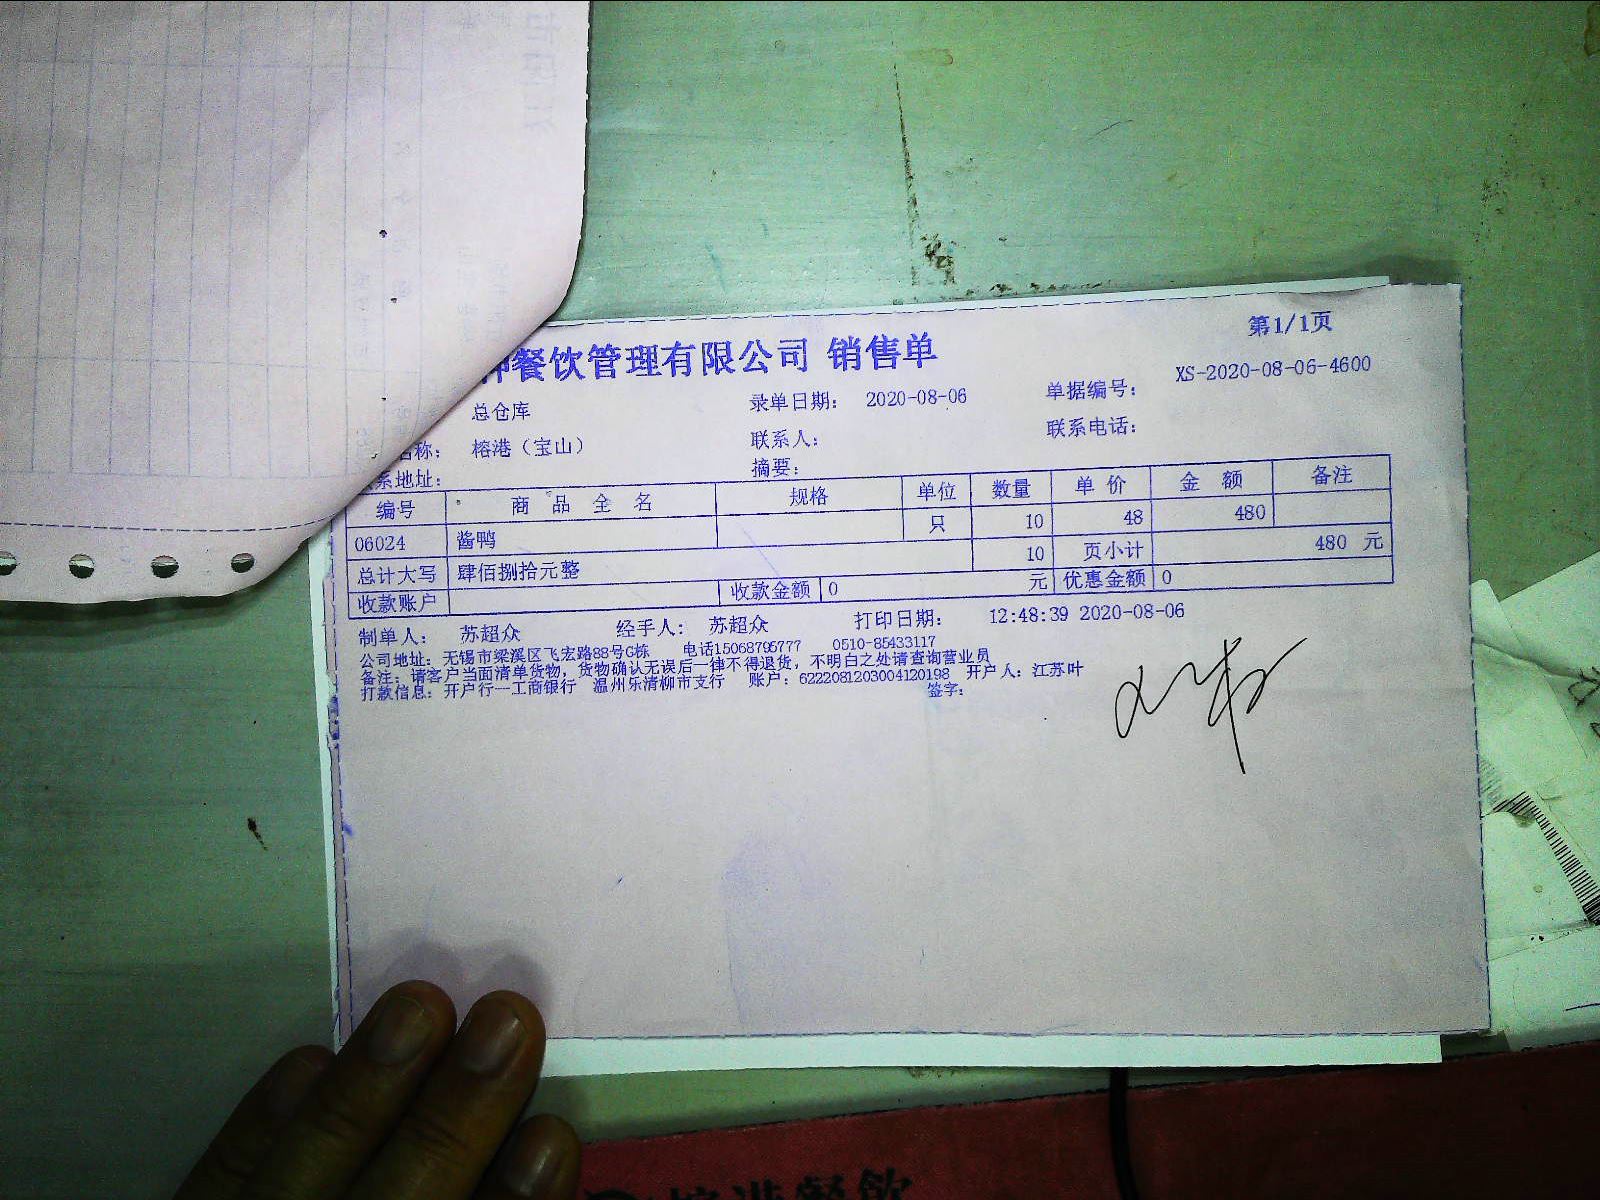 餐饮管理有限公司 销售单
第1/1页
总仓库 录单日期: 2020-08-06 单据编号: XS-2020-08-06-4600
名称: 榕港（宝山） 联系人: 联系电话:
系地址: 摘要:
编号 商品全名 规格 单位 数量 单价 金额 备注
06024 酱鸭 只 10 48 480
总计大写 肆佰捌拾元整 10 页小计 480 元
收款账户 收款金额 0 元 优惠金额 0
制单人: 苏超众 经手人: 苏超众 打印日期: 12:48:39 2020-08-06
公司地址: 无锡市梁溪区飞宏路88号G栋 电话15068795777 0510-85433117
备注: 请客户当面清单货物, 货物确认无误后一律不得退货, 不明白之处请查询营业员
打款信息: 开户行一工商银行 温州乐清柳市支行 账户: 6222081203004120198 开户人: 江苏叶
签字:
榕港餐饮